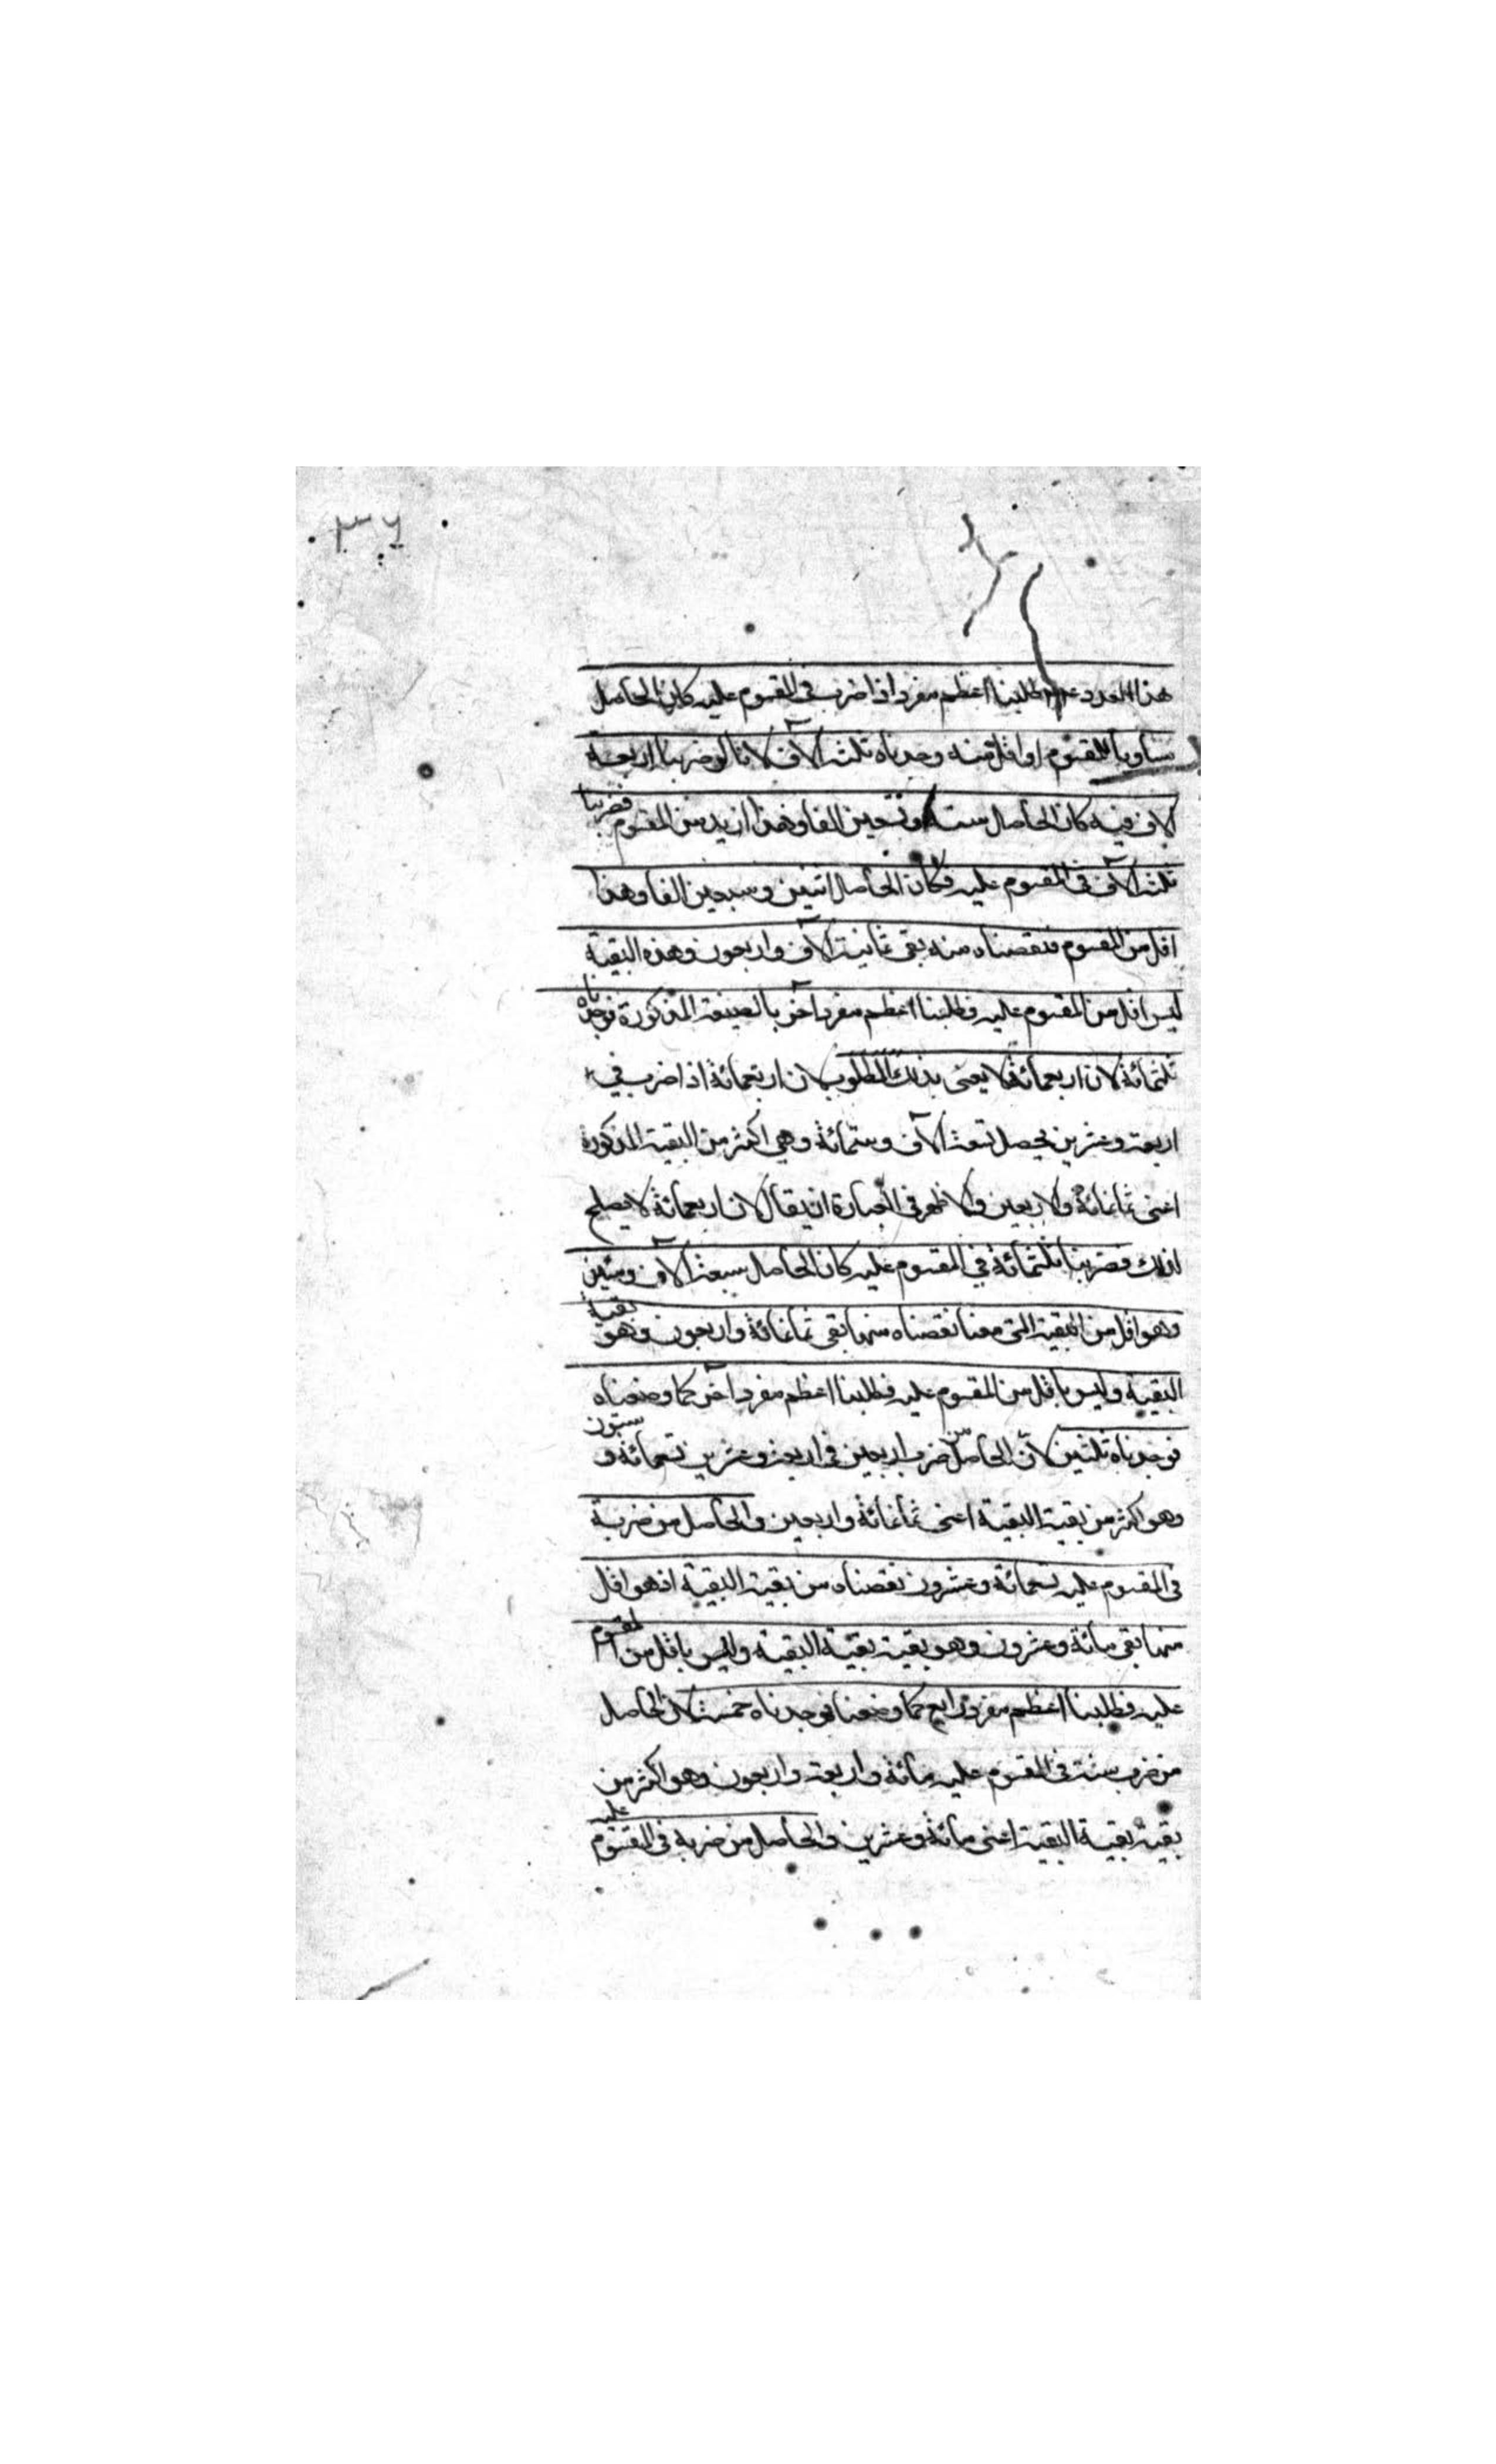 ٣٦
هذا العدد عليه طلبنا اعظم مفرد اذا ضرب فى المقسوم عليه كان الحاصل
مساويا للمقسوم او اقل منه وجدناه ثلثة آلاف لانا لو ضربنا اربعة
آلاف فيه كان الحاصل ستة وتسعين الفا وهذا ازيد من المقسوم فضربنا
ثلثة آلاف فى المقسوم عليه فكان الحاصل اثنين وسبعين الفا وهذا
اقل من المقسوم فنقصناه منه بقى ثمانية آلاف واربعون وهذه البقية
ليس اقل من المقسوم عليه فطلبنا اعظم مفرد آخر بالصفة المذكورة فوجدناه
ثلثمائة لان اربعمائة لا يعنى بذلك المطلوب لان اربعمائة اذا ضرب في
اربعة وعشرين يحصل تسعة آلاف وستمائة وهي اكثر من البقية المذكورة
اعنى ثمانمائة والاربعين والاظهر فى العبارة ان يقال لان اربعمائة لا يصلح
لذلك فضربنا ثلثمائة في المقسوم عليه كان الحاصل سبعة آلاف ومئتين
وهو اقل من البقية التى معنا نقصناه منها بقى ثمانمائة واربعون وهو بقية
البقية وليس باقل من المقسوم عليه فطلبنا اعظم مفرد آخر كما وصفناه
فوجدناه ثلثين لان الحاصل من ضرب اربعين فى اربعة وعشرين تسعمائة و ستون
وهو اكثر من بقية البقية اعنى ثمانمائة واربعين والحاصل من ضربه
فى المقسوم عليه سبعمائة وعشرون نقصناه من بقية البقية اذ هو اقل
منها بقى مائة وعشرون وهو بقية بقية البقية وليس باقل من المقسوم
عليه فطلبنا اعظم مفرد رابع كما وصفنا فوجدناه خمسة لان الحاصل
من ضرب ستة فى المقسوم عليه مائة واربعة واربعون وهو اكثر من
بقية بقية البقية اعنى مائة وعشرين والحاصل من ضربه فى المقسوم عليه